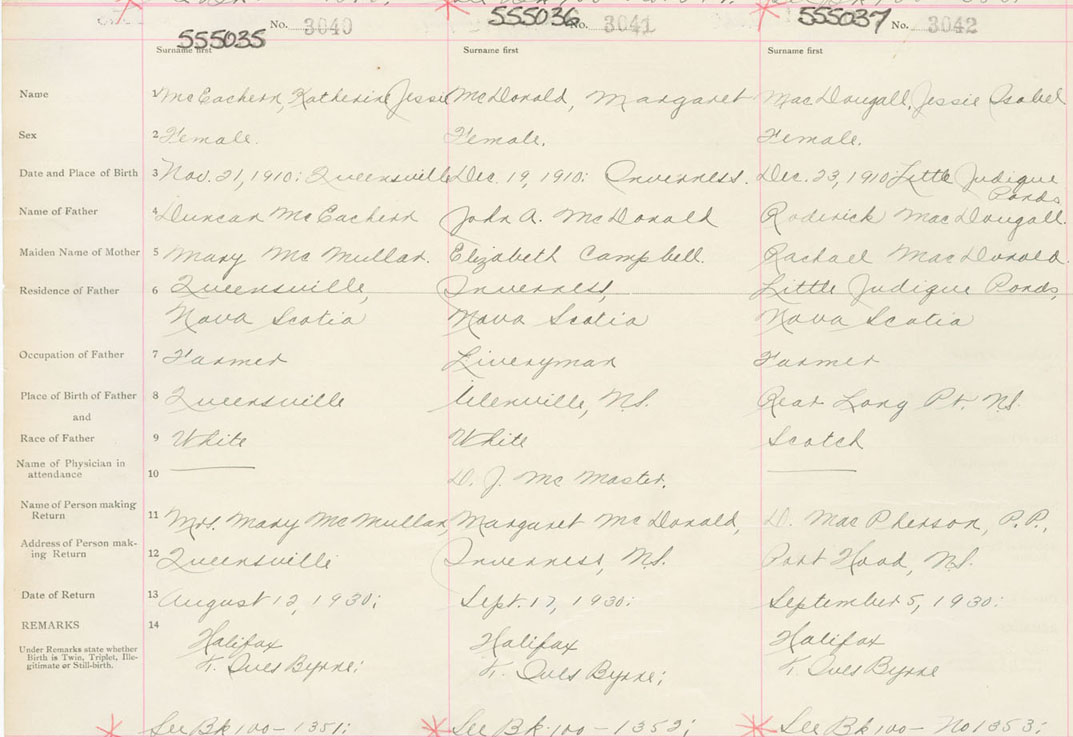 555035 No. 3040 555036 No. 3041 555037 No. 3042
Surname first Surname first Surname first
Name 1 McEachern, Katherine Jessie McDonald, Margaret MacDougall, Jessie Isabel
Sex 2 Female. Female. Female.
Date and Place of Birth 3 Nov. 21, 1910: Queensville Dec. 19, 1910: Inverness. Dec. 23, 1910 Little Judique
Ponds
Name of Father 4 Duncan McEachern John A. McDonald Roderick MacDougall.
Maiden Name of Mother 5 Mary McMullan. Elizabeth Campbell. Rachael MacDonald.
Residence of Father 6 Queensville, Inverness, Little Judique Ponds,
Nova Scotia Nova Scotia Nova Scotia
Occupation of Father 7 Farmer Liveryman Farmer
Place of Birth of Father 8 Queensville Glenville, N.S. Rear Long Pt. N.S.
and
Race of Father 9 White White Scotch
Name of Physician in
attendance 10 D. J. McMaster.
Name of Person making
Return 11 Mrs. Mary McMullan, Margaret McDonald, D. MacPherson, P.P.,
Address of Person mak-
ing Return 12 Queensville Inverness, N.S. Port Hood, N.S.
Date of Return 13 August 12, 1930: Sept. 17, 1930: September 5, 1930:
REMARKS 14
Halifax Halifax Halifax
Under Remarks state whether
Birth is Twin, Triplet, Ille-
gitimate or Still-birth.
Byrne; Byrne; Byrne
See Bk 100 - 1351; See Bk. 100 - 1352; See Bk 100 - No 1353;